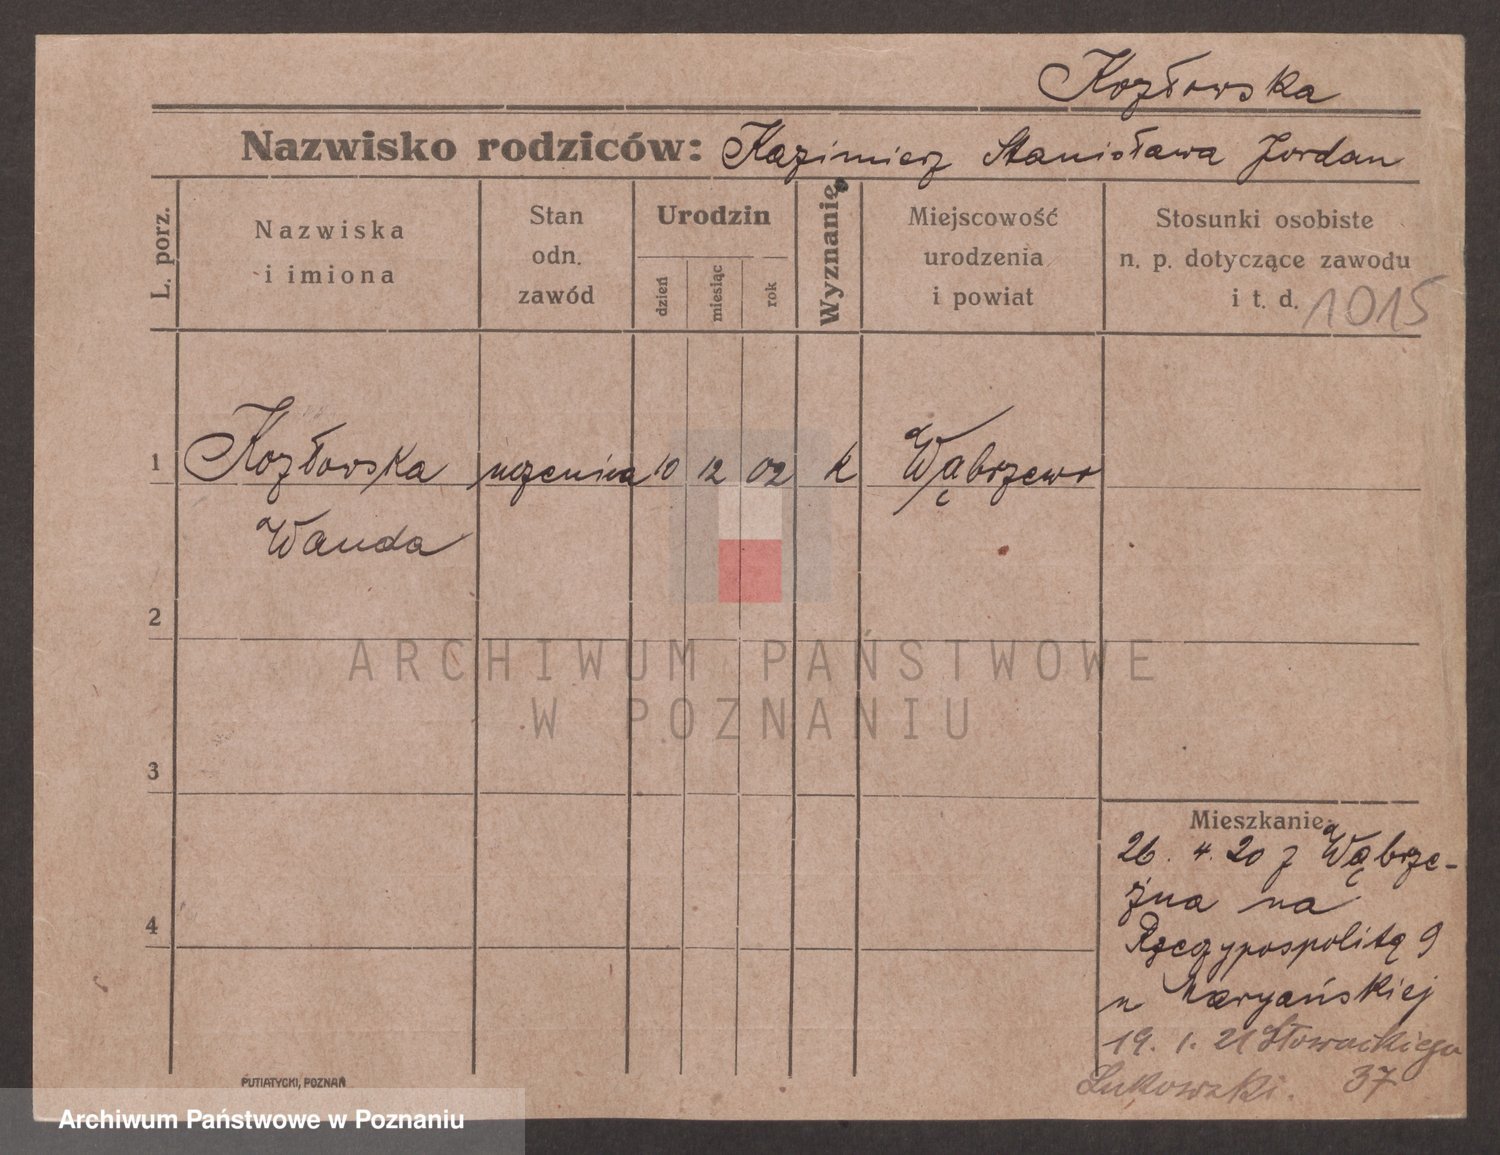 Kozłowska
Nazwisko rodziców: Kazimierz Stanisława Jordan
L. porz.
Nazwiska
i imiona
Stan
odn.
zawód
Urodzin
dzień
miesiąc
rok
Wyznanie
Miejscowość
urodzenia
i powiat
Stosunki osobiste
n. p. dotyczące zawodu
i t. d. 1015
1 Kozłowska uczenica 10 12 02 k Wąbrzewo
Wanda
2
ARCHIWUM PAŃSTWOWE
W POZNANIU
3
Mieszkanie:
26. 4. 20 z Wąbrze-
źna na
4
Rzeczypospolitą 9
u Maryańskiej
19. 1. 21 Słowackiego
37
Łukowski.
PUTIATYCKI, POZNAŃ
Archiwum Państwowe w Poznaniu